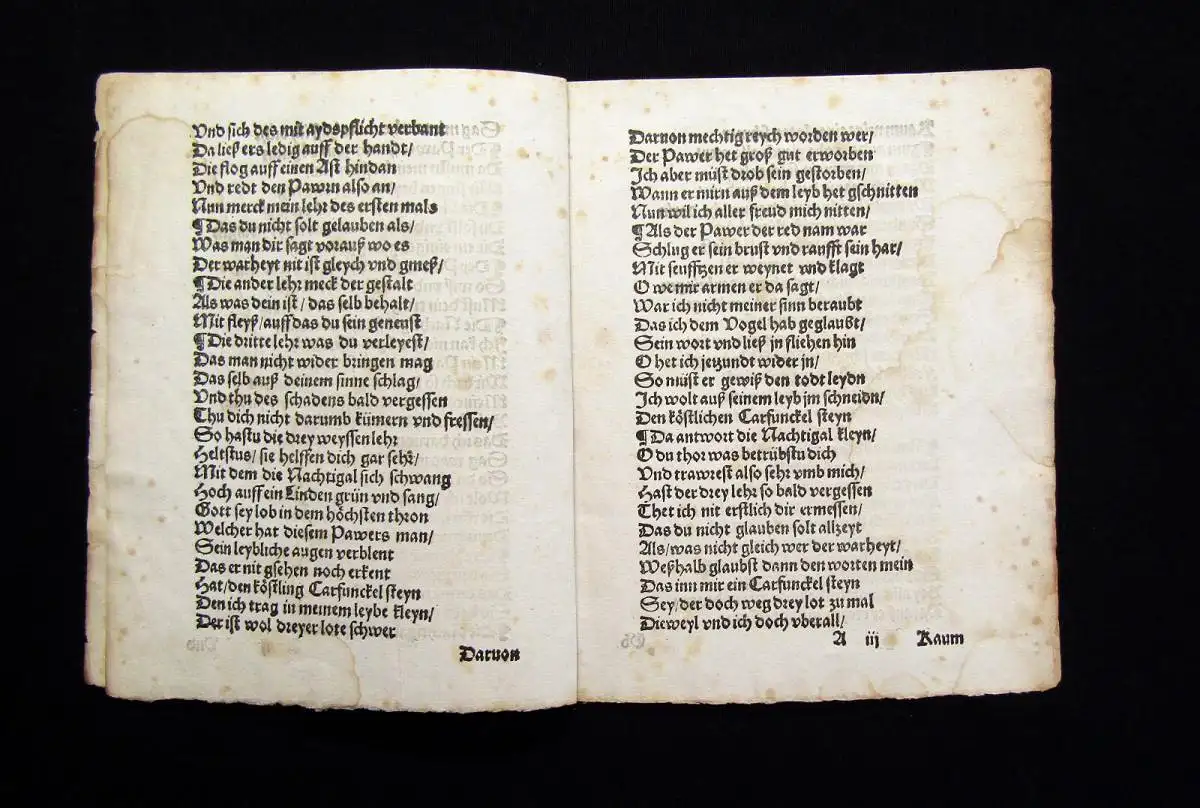 Vnd sich des mit aydspflicht verbant
Da ließ ers ledig auff der handt/
Die flog auff einen Ast hindan
Vnd redt den Pawrn also an/
Nun merck mein lehr des ersten mals
¶Das du nicht solt gelauben als/
Was man dir sagt vorauß wo es
Der warheyt nit ist gleych vnd gmeß/
¶Die ander lehr meck der gestalt
Als was dein ist/ das selb behalt/
Mit fleyß/ auff das du sein geneust
¶Die dritte lehr was du verleyest/
Das man nicht wider bringen mag
Das selb auß deinem sinne schlag/
Vnd thu des schadens bald vergessen
Thu dich nicht darumb kümern vnd fressen/
So hastu die drey weyssen lehr
Heltstus/ sie helffen dich gar sehr/
Mit dem die Nachtigal sich schwang
Hoch auff ein Linden grün vnd sang/
Gott sey lob in dem höchsten thron
Welcher hat diesem Pawers man/
Sein leybliche augen verblent
Das er nit gsehen noch erkent
Hat/ den köstling Carfunckel steyn
Den ich trag in meinem leybe kleyn/
Der ist wol dreyer lote schwer
Daruon
Daruon mechtig reych worden wer/
Der Pawer het groß gut erworben
Ich aber müst drob sein gestorben/
Wann er mirn auß dem leyb het gschnitten
Nun wil ich aller freud mich nitten/
¶Als der Pawer der red nam war
Schlug er sein brust vnd raufft sein har/
Mit seufftzen er weynet vnd klagt
O we mir armen er da sagt/
War ich nicht meiner sinn beraubt
Das ich dem Vogel hab geglaubt/
Sein wort vnd ließ jn fliehen hin
O het ich jetzundt wider jn/
So müst er gewiß den todt leydn
Ich wolt auß seinem leyb jm schneidn/
Den köstlichen Carfunckel steyn
¶Da antwort die Nachtigal kleyn/
O du thor was betrübstu dich
Vnd trawrest also sehr vmb mich/
Hast der drey lehr so bald vergessen
Thet ich nit erstlich dir ermessen/
Das du nicht glauben solt allzeyt
Als/ was nicht gleich wer der warheyt/
Weßhalb glaubst dann den worten mein
Das inn mir ein Carfunckel steyn
Sey/ der doch weg drey lot zu mal
Dieweyl vnd ich doch vberall/
A iij Kaum